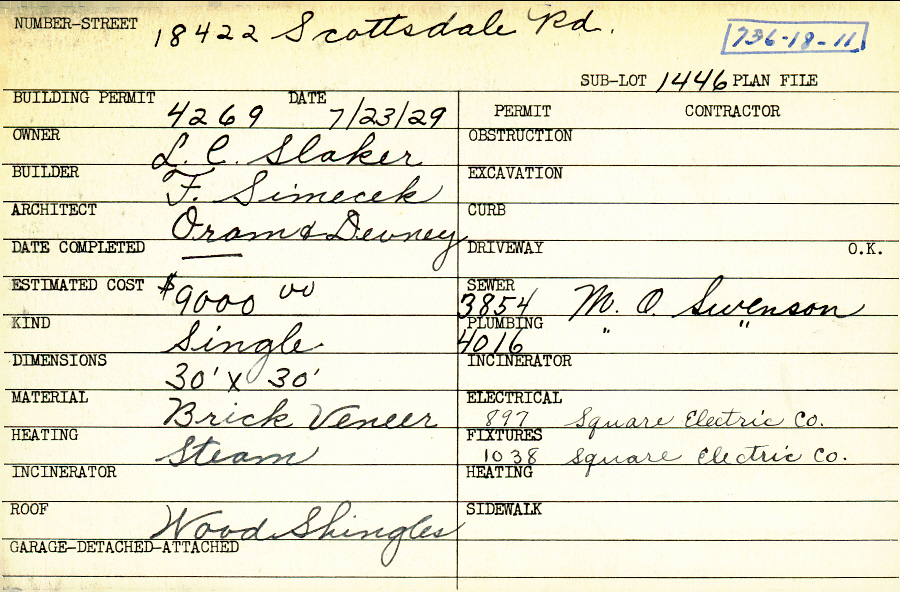 NUMBER-STREET 18422 Scottsdale Rd. 736-18-11
SUB-LOT 1446 PLAN FILE
BUILDING PERMIT 4269 DATE 7/23/29
OWNER L. C. Slaker
BUILDER F. Simecek
ARCHITECT Oram & Devney
DATE COMPLETED
ESTIMATED COST $9000 00
KIND Single
DIMENSIONS 30' x 30'
MATERIAL Brick Veneer
HEATING Steam
INCINERATOR
ROOF Wood Shingles
GARAGE-DETACHED-ATTACHED
PERMIT CONTRACTOR
OBSTRUCTION
EXCAVATION
CURB
DRIVEWAY O.K.
SEWER 3854 M. O. Swenson
PLUMBING 4016 " "
INCINERATOR
ELECTRICAL 897 Square Electric Co.
FIXTURES 1038 Square Electric Co.
HEATING
SIDEWALK